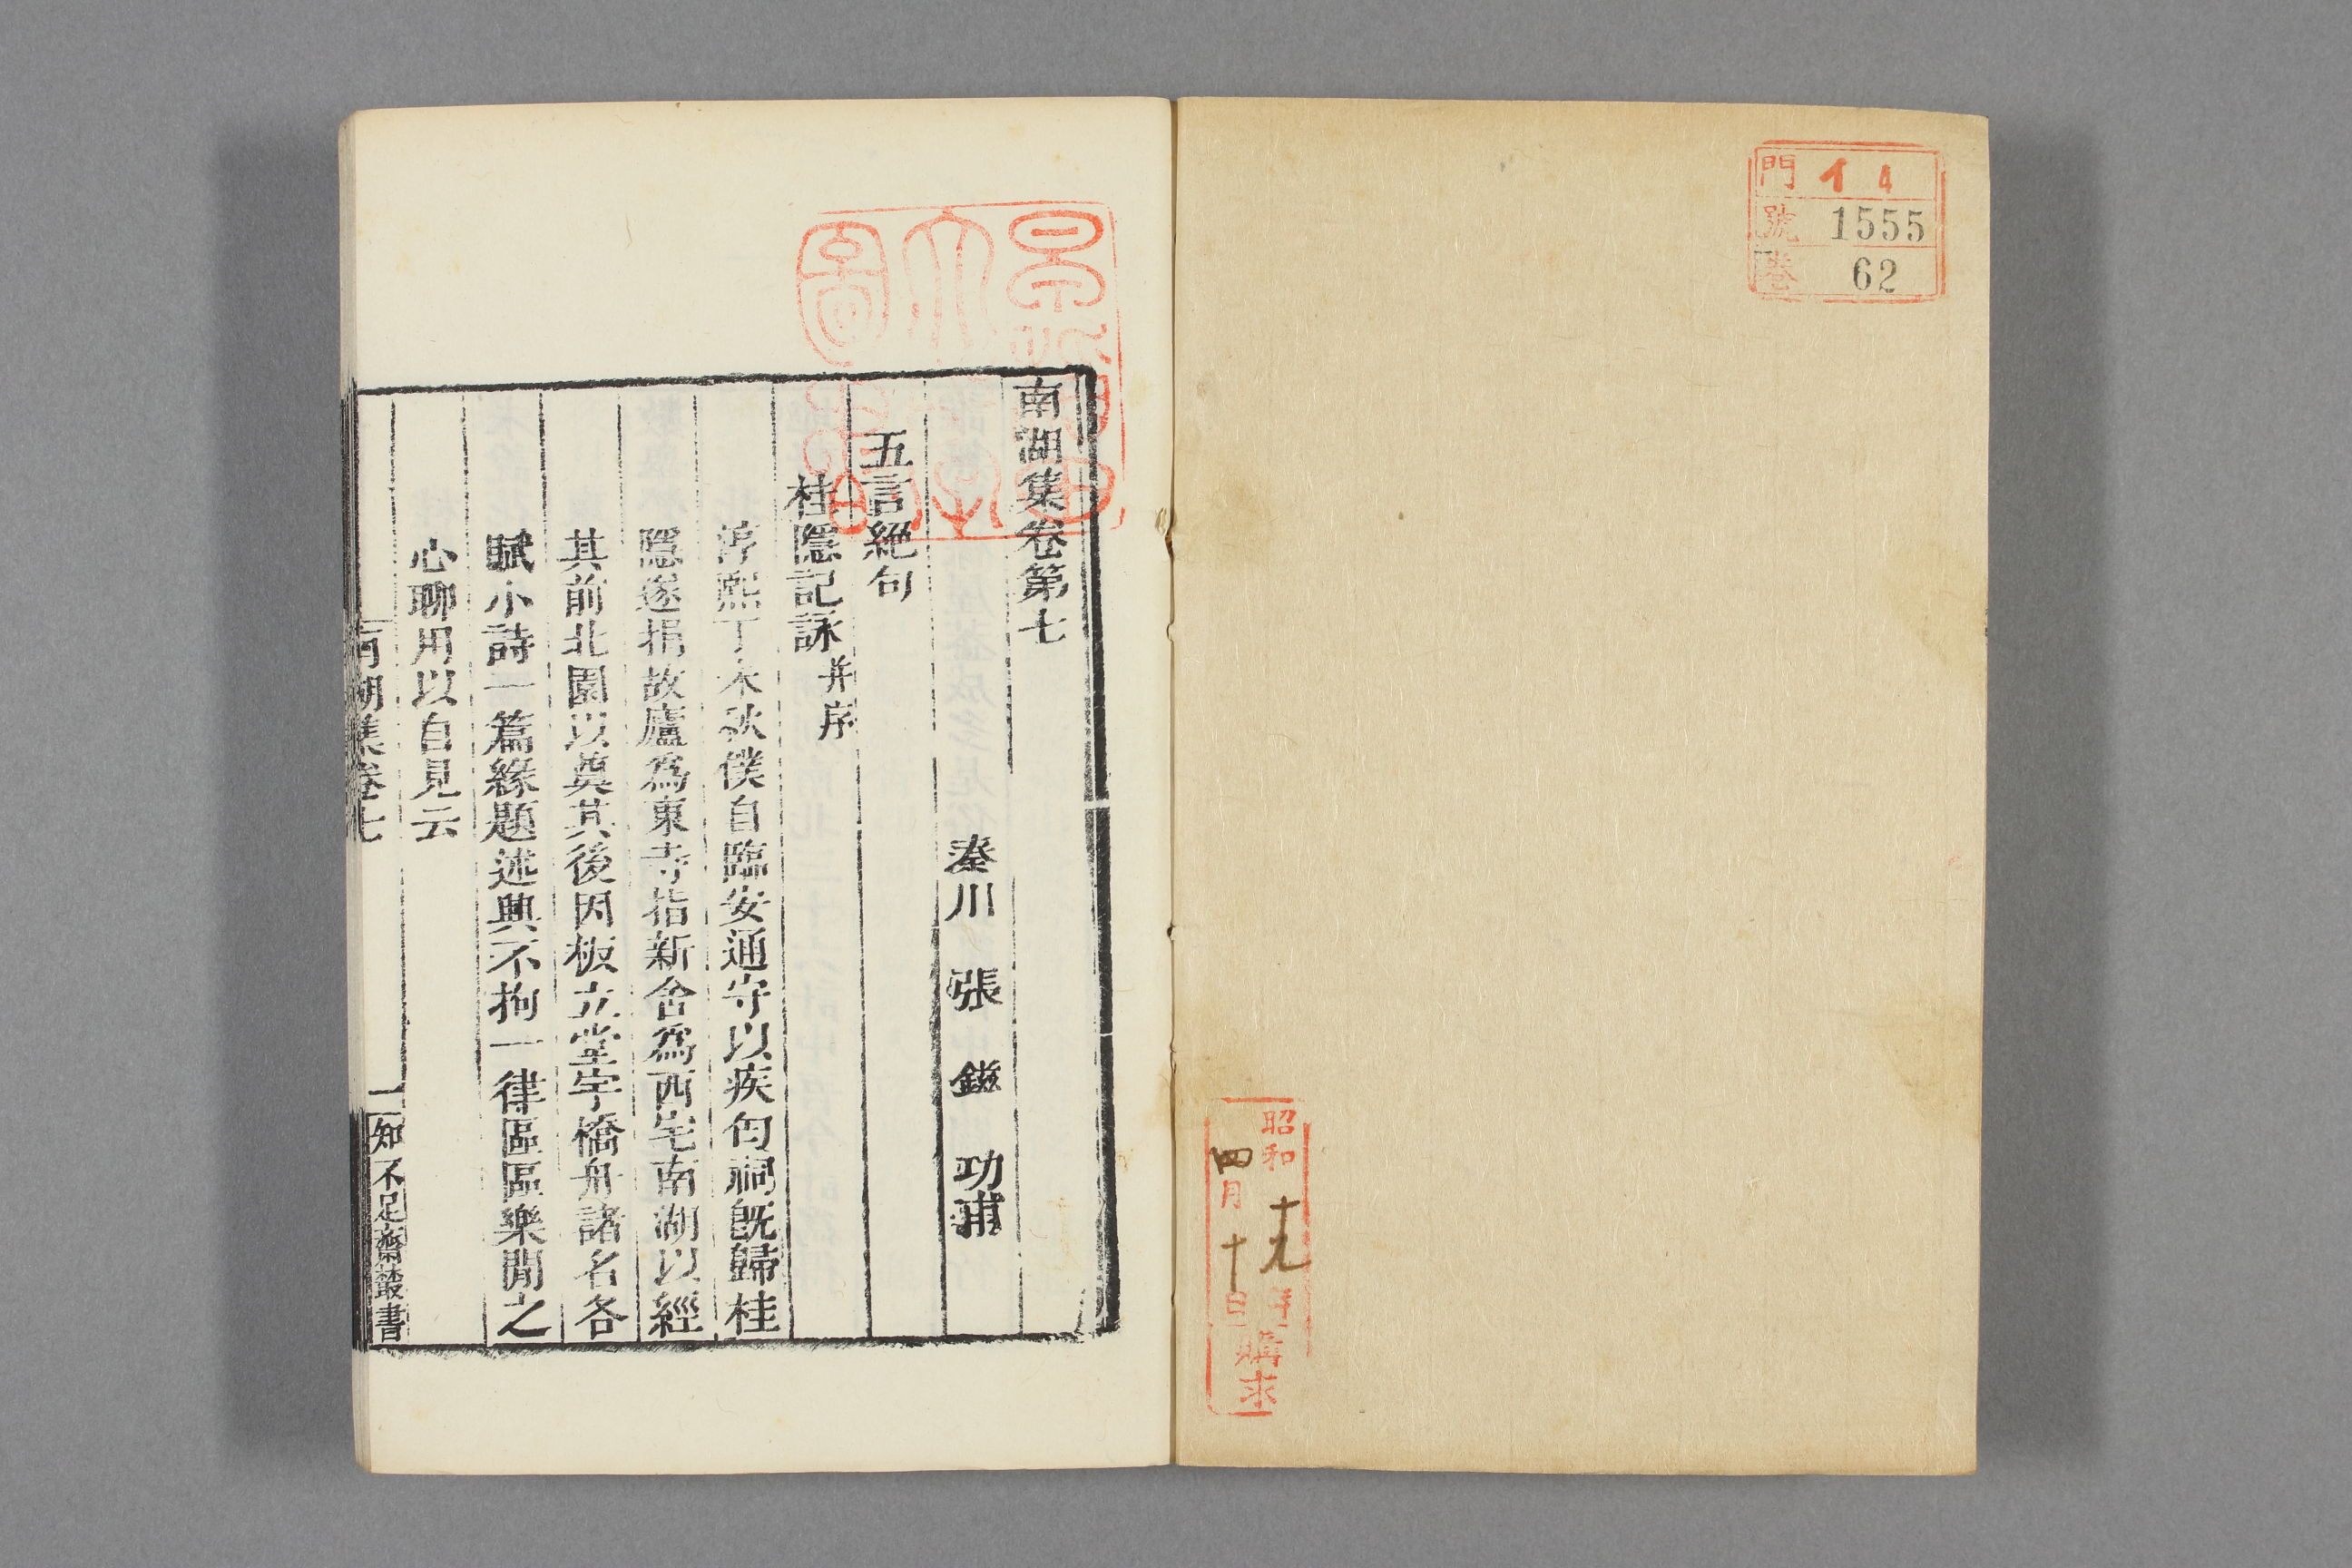 門 イ 4
號 1555
卷 62
昭和十九年
四月十日
購求
南湖集卷第七
秦川 張 鎡 功甫
五言絕句
桂隱記詠 并序
淳熙丁未秋僕自臨安通守以疾匄祠既歸桂
隱遂捐故廬爲東寺指新舍爲西宅南湖以經
其前北園以奠其後因板立堂宇橋舟諸名各
賦小詩一篇緣題述興不拘一律區區樂閒之
心聊用以自見云
南湖集卷七
一
知不足齋叢書